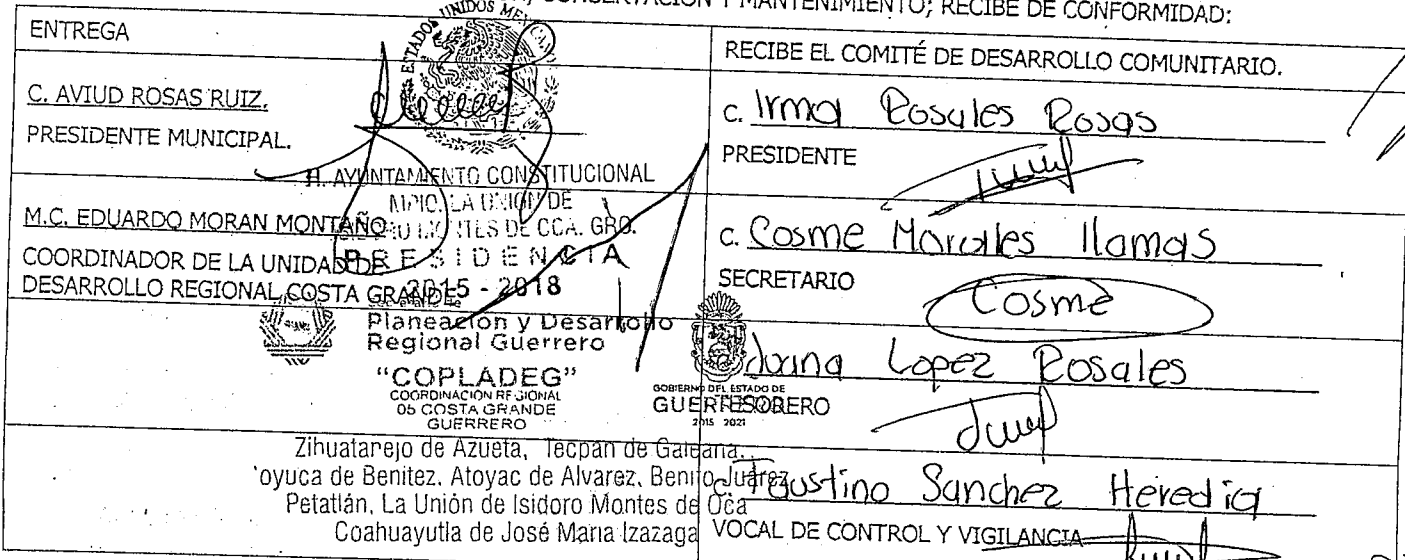 CONSERVACIÓN Y MANTENIMIENTO; RECIBE DE CONFORMIDAD:
ENTREGA
C. AVIUD ROSAS RUIZ.
PRESIDENTE MUNICIPAL.
ESTADOS UNIDOS MEX
H. AYUNTAMIENTO CONSTITUCIONAL
MPIO. LA UNION DE
DE CCA. GRO.
PRESIDENCIA
2015 - 2018
M.C. EDUARDO MORAN MONTAÑO
COORDINADOR DE LA UNIDAD DE
DESARROLLO REGIONAL COSTA GRANDE
Planeación y Desarrollo
Regional Guerrero
"COPLADEG"
COORDINACION REGIONAL
05 COSTA GRANDE
GUERRERO
GOBIERNO DEL ESTADO DE
GUERRERO
2015 2021
Zihuatanejo de Azueta, Tecpan de Galeana,
oyuca de Benitez, Atoyac de Alvarez, Benito Juárez
Petatlán, La Unión de Isidoro Montes de Oca
Coahuayutla de José Maria Izazaga
RECIBE EL COMITÉ DE DESARROLLO COMUNITARIO.
C. Irma Rosales Rosas
PRESIDENTE
C. Cosme Morales llamas
SECRETARIO
Cosme
Lopez Rosales
TESORERO
C. Faustino Sanchez Heredia
VOCAL DE CONTROL Y VIGILANCIA